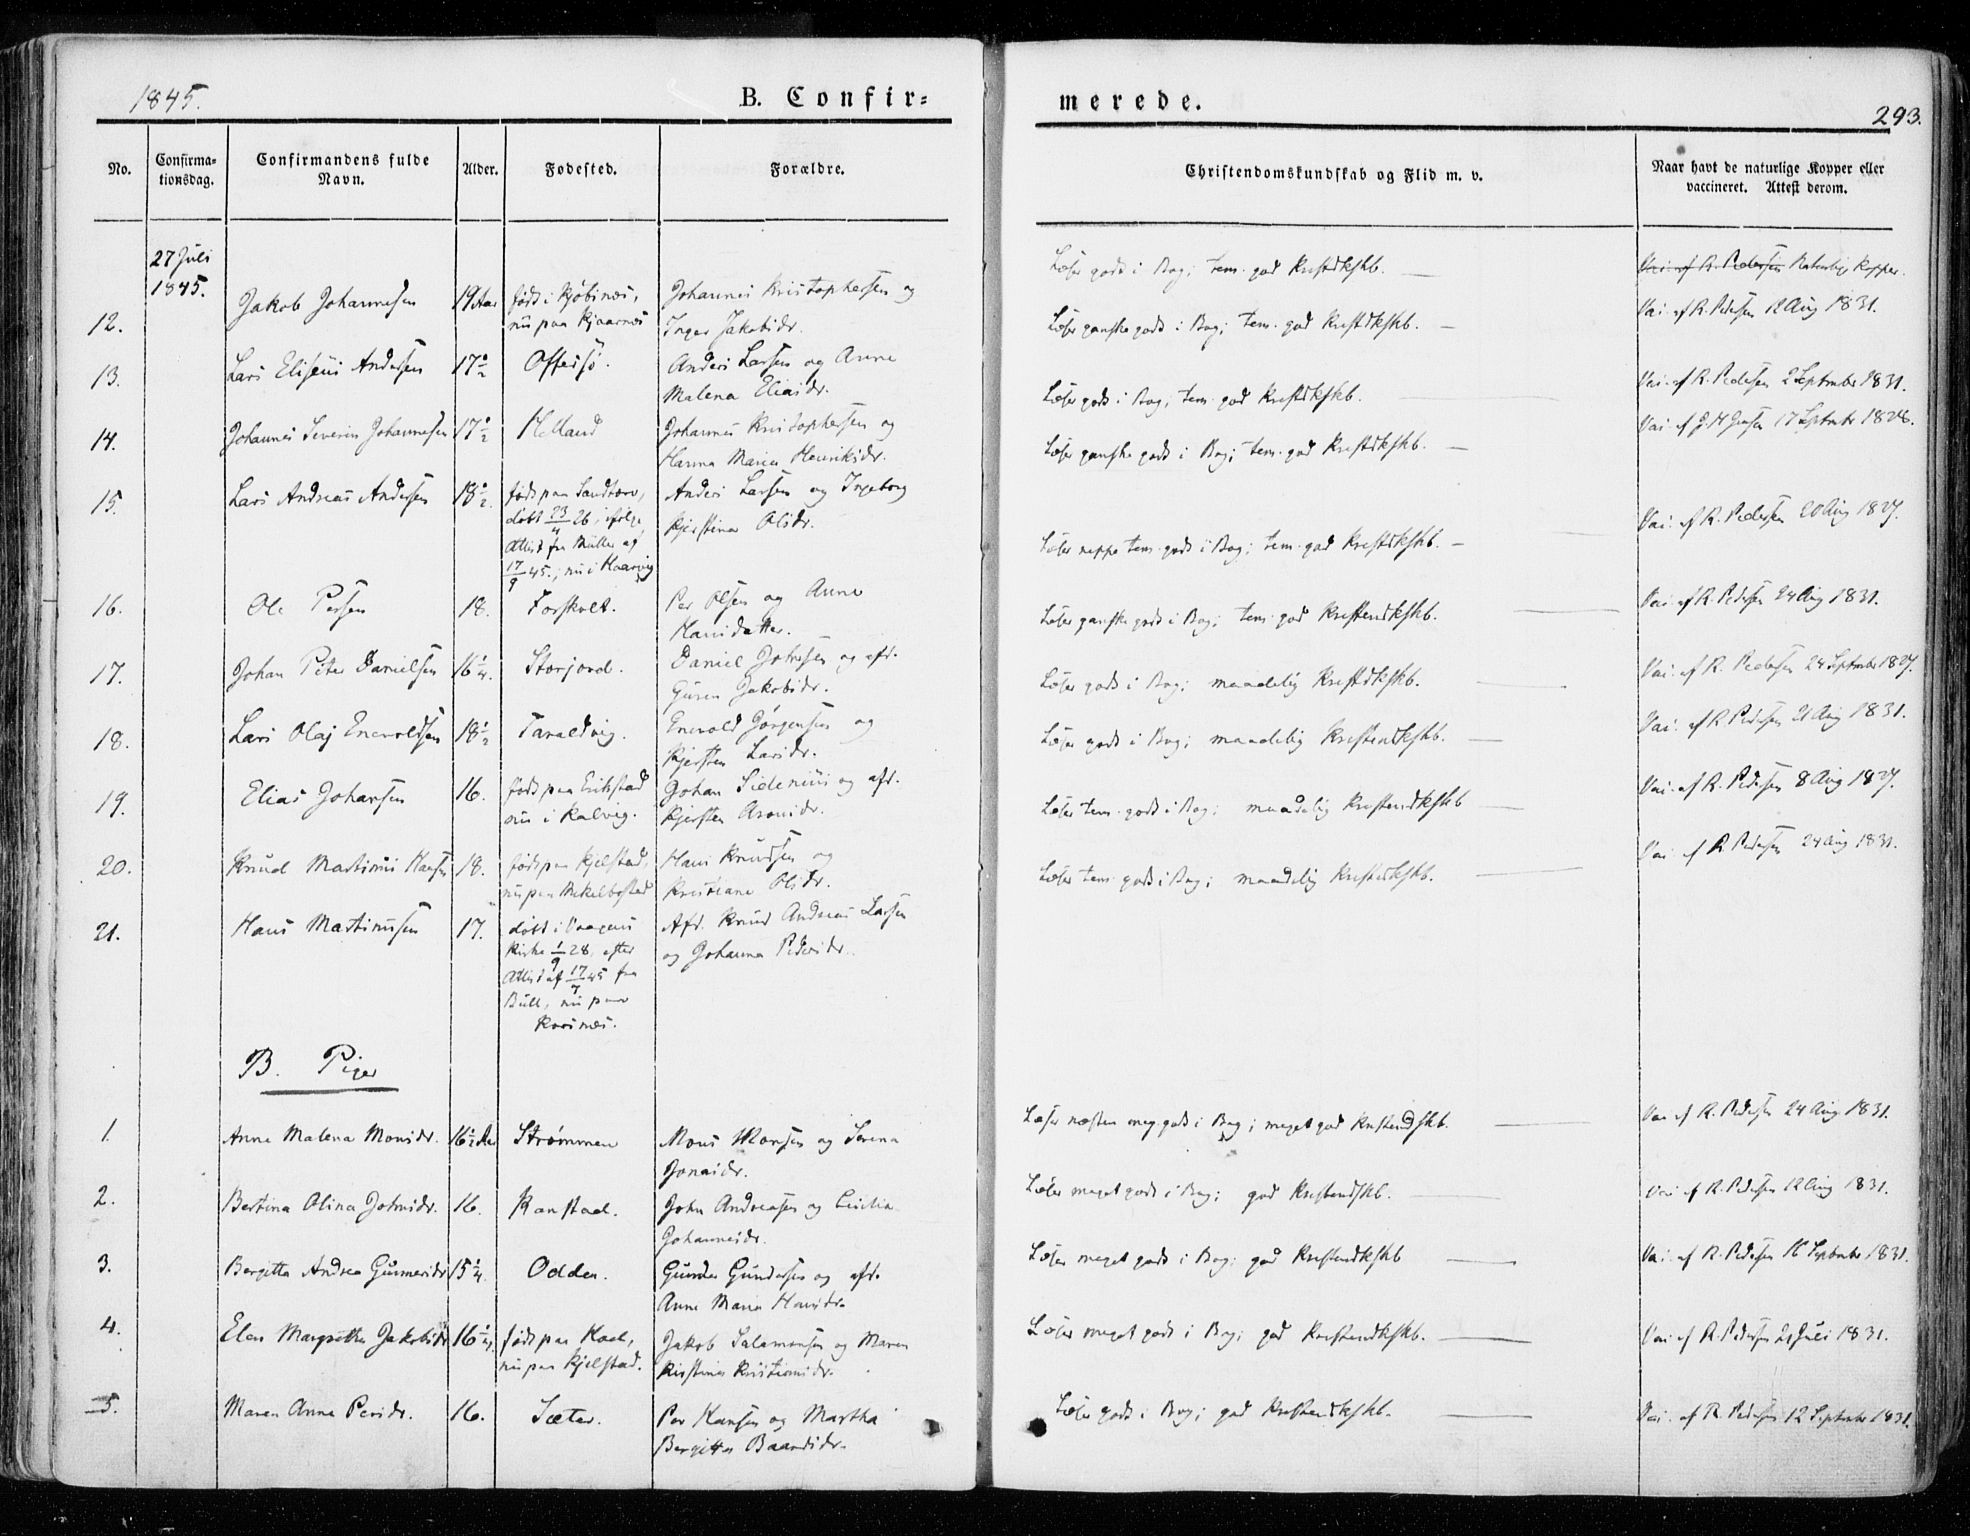 1845.
B. Confir=
merede.
293.
No.
Confirma-
tionsdag.
Confirmandens fulde
Navn.
Alder.
Fødested.
Forældre.
Christendomskundskab og Flid m. v.
Naar havt de naturlige Kopper eller
vaccineret. Attest derom.
27 Juli
1845.
12.
Jakob Johannesen
19 Aar
født i Kjøbsnæs,
nu paa Kjaarnes
Johannes Kristophersen og
Inger Jakobsdr.
Læser godt i Bog; tem. god Kristdkskb.
Vai. af R. Pedersen Naturlig Kopper.
13.
Lars Eliseus Andersen
17½
Offersø.
Anders Larsen og Anne
Malena Eliasdr.
Læser ganske godt i Bog; tem. god Kristdkskb.
Vai. af R. Pedersen 12 Aug 1831.
14.
Johannes Severin Johannesen
17½
Helland
Johannes Kristophersen og
Hanna Maria Henriksdr.
Læser godt i Bog; tem. god Kristdkskb.
Vai. af R. Pedersen 2 September 1831.
15.
Lars Andreas Andersen
18½.
født paa Sandtorv,
døbt 23/4 26, ifølge
Attest fra Müller af
17/9 45.; nu i Kaarvig
Anders Larsen og Ingeborg
Kjerstina Olsdr.
Læser ganske godt i Bog; tem. god Kristdkskb.
Vai. af J. H. Jensen 17 September 1828.
16.
Ole Persen
18.
Forskolt.
Per Olsen og Anne
Hansdatter.
Læser neppe tem. godt i Bog; tem. god Kristdkskb.
Vai. af R. Pedersen 20 Aug 1827.
17.
Johan Peter Danielsen
16¼.
Storjord.
Daniel Johnsen og afd.
Guren Jakobsdr.
Læser ganske godt i Bog; tem. god Kristendkskb.
Vai. af R. Pedersen 24 Aug 1831.
18.
Lars Olaj Enevoldsen
18½
Taraldvig.
Enevold Jørgensen og
Kjersten Larsdr.
Læser godt i Bog; maadelig Kristdkskb.
Vai. af R. Pedersen 24 September 1827.
19.
Elias Johansen
16.
født paa Erikstad
nu i Kalvig.
Johan Sidenius og afd.
Kjersten Aronsdr.
Læser godt i Bog; maadelig Kristendkskb.
Vai. af R. Pedersen 21 Aug 1831.
20.
Knud Martinus Hansen
18.
født paa Kjelstad,
nu paa Mekelbostad
Hans Knudsen og
Kristiane Olsdr.
Læser tem. godt i Bog; maadelig Kristendkskb
Vai. af R. Pedersen 8 Aug 1827.
21.
Hans Martinusen
17.
døbt i Vaagens
Kirke 1/9 28, efter
Attest af 17/7 45 fra
Bull, nu paa
Korsnæs.
Afd. Knud Andreas Larsen
og Johanna Pedersdr.
Læser tem. godt i Bog; maadelig Kristdkskb.
Vai. af R. Pedersen 24 Aug 1831.
B. Piger
1.
Anne Malena Monsdr.
16½ Aar
Strømmen
Mons Monsen og Serena
Jonasdr.
Læser næsten meg. godt i Bog; meget god Kristendskb.
Vai af R. Pedersen 24 Aug. 1831.
2.
Bertina Olina Johnsdr.
16.
Kanstad.
John Andreasen og Cicilia
Johannesdr.
Læser meget godt i Bog; god Kristendskb.
Vai. af R. Pedersen 12 Aug 1831.
3.
Bergitta Andrea Gunnersdr
15¼.
Odden.
Gunder Gundersen og afd.
Anne Maria Hansdr.
Læser meget godt i Bog; god Kristendkskb
Vai. af R. Pedersen 16 September 1831.
4.
Elen Margrethe Jakobsdr
16¼.
født paa Kael,
nu paa Kjelstad.
Jakob Salamonsen og Maren
Kirstina Kristiansdr.
Læser meget godt i Bog; god Kristendkskb.
Vai. af R. Pedersen 21 Juli 1831.
5.
Maren Anna Persdr.
16.
Sæter.
Per Hansen og Martha
Bergitta Baardsdr.
Læser godt i Bog; god Kristendkskb.
Vai. af R. Pedersen 12 September 1831.